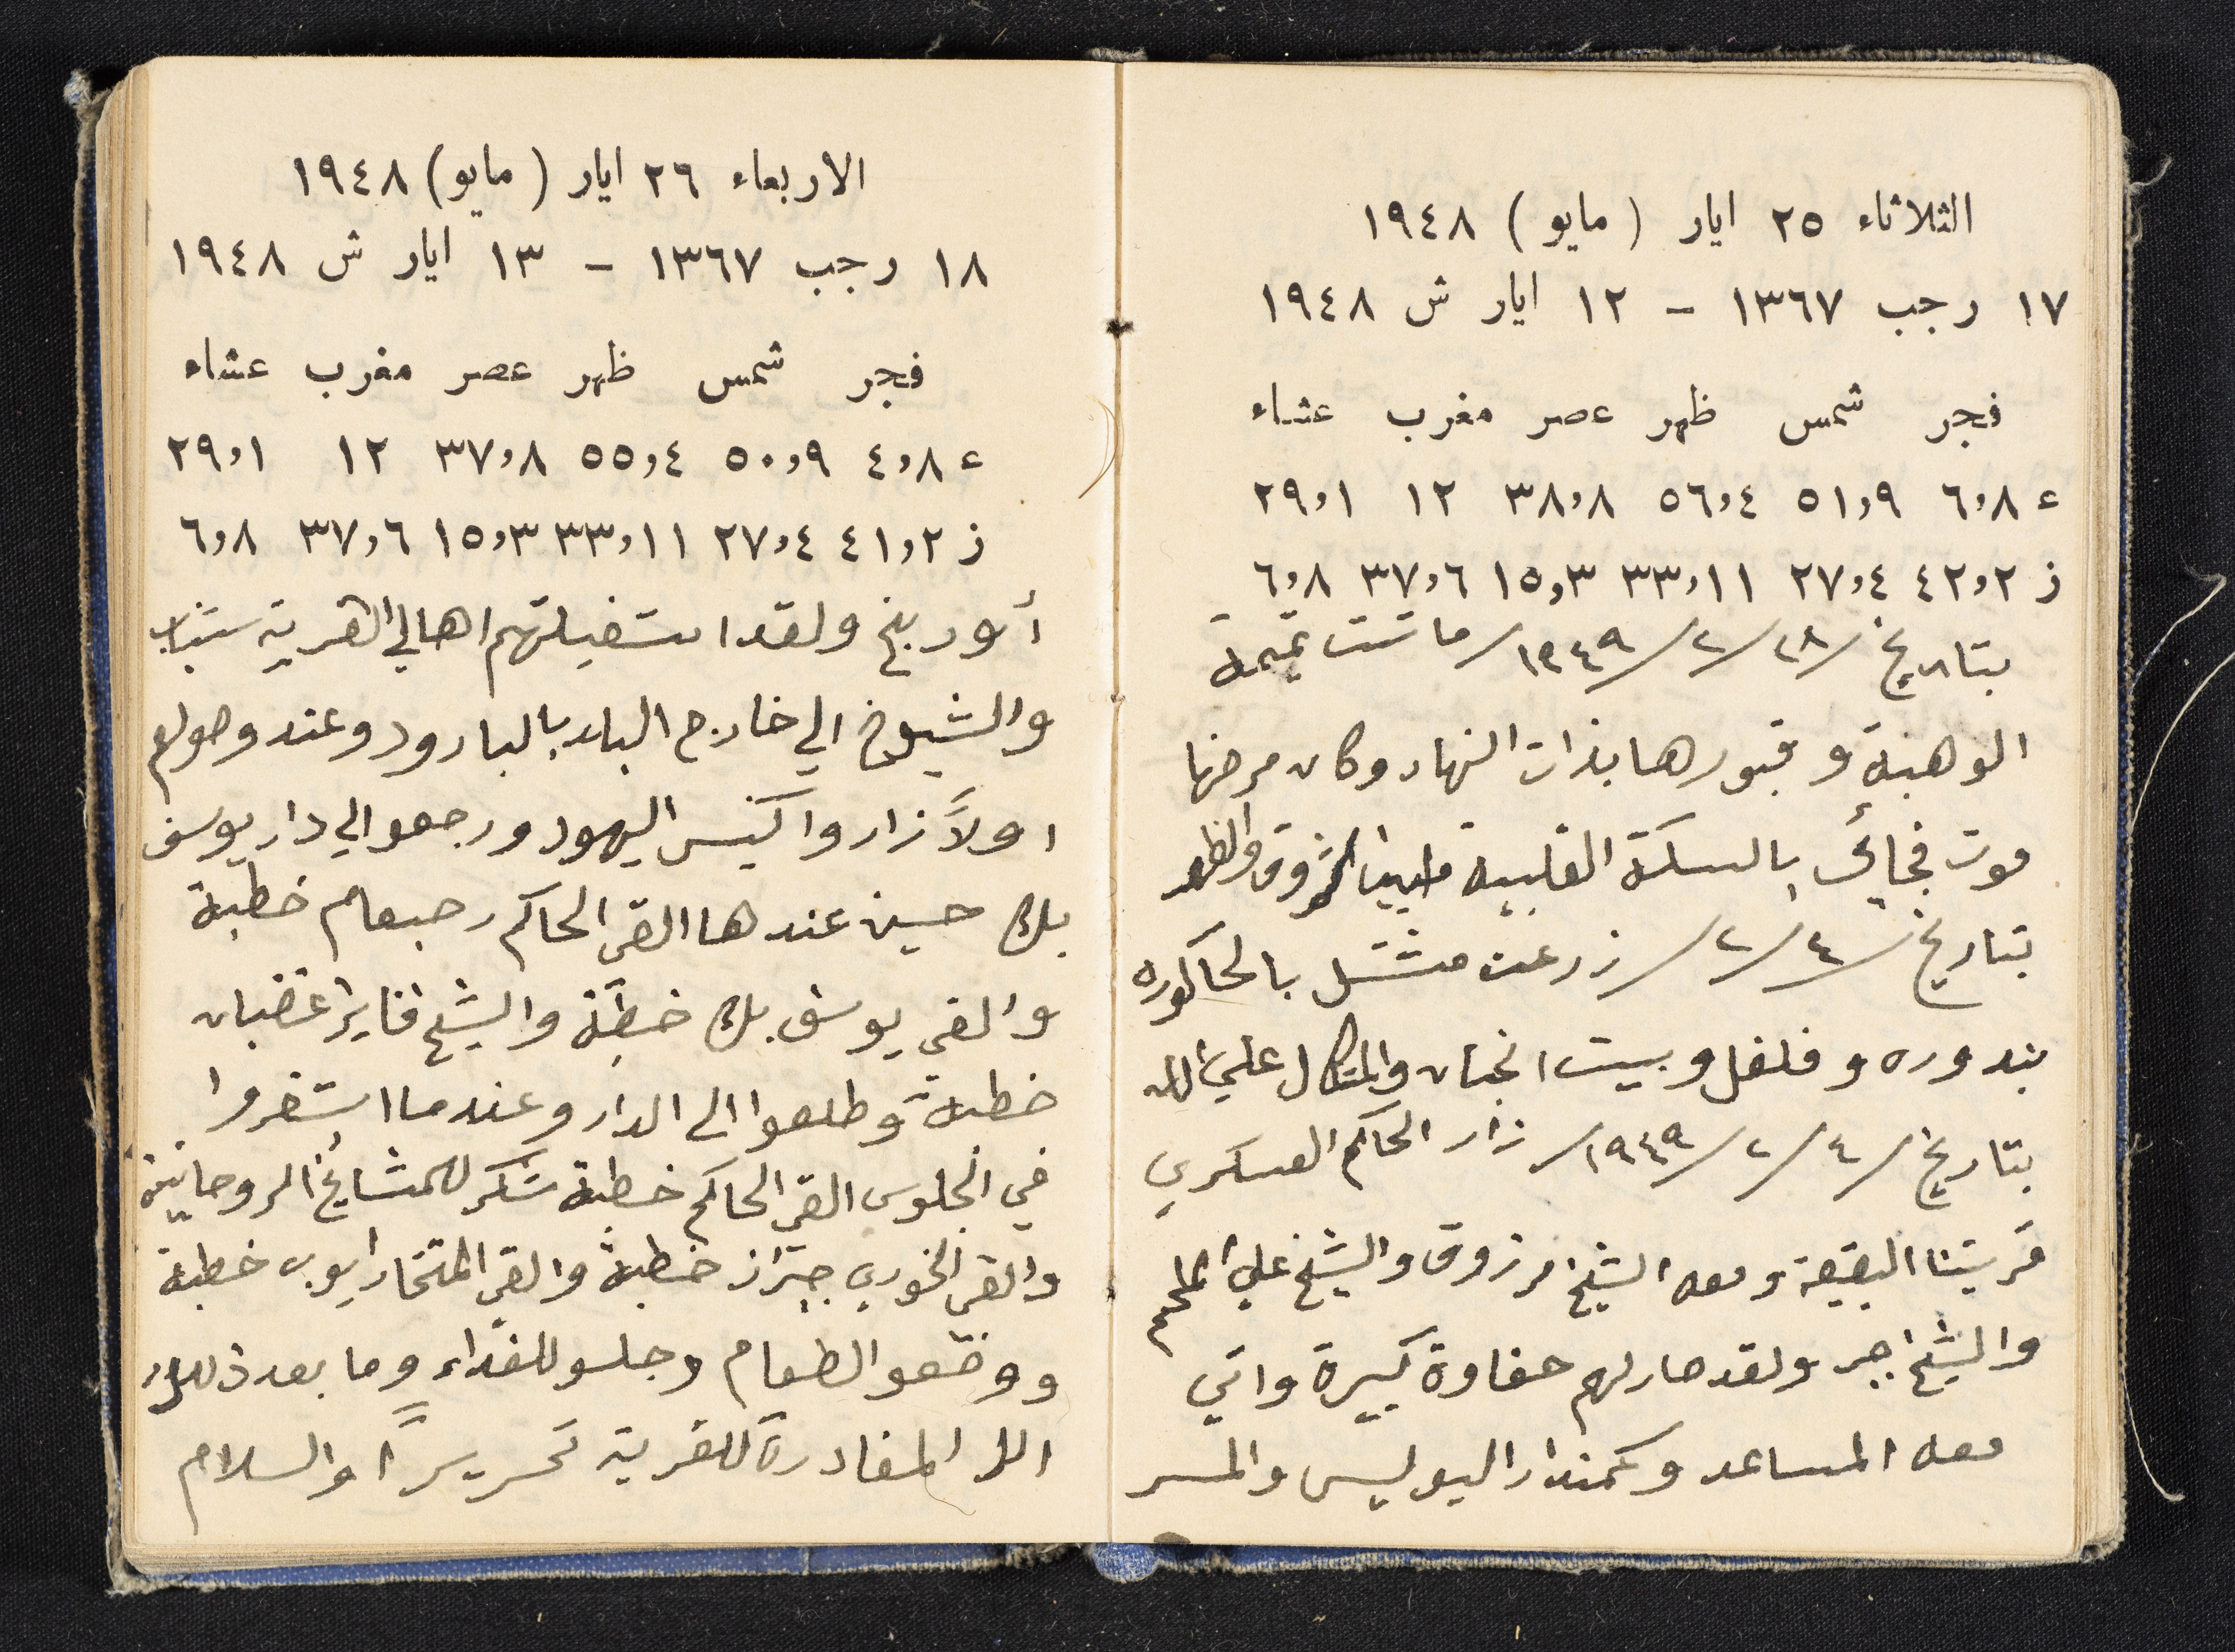 الثلاثاء ٢٥ ايار (مايو) ١٩٤٨
١٧ رجب ١٣٦٧ - ١٢ ايار ش ١٩٤٨
فجر شمس ظهر عصر مغرب عشاء
ع ٦,٨ ٥١,٩ ٥٦,٤ ٣٨,٨ ١٢ ٢٩,١
ز ٤٢,٢ ٢٧,٤ ٣٣,١١ ١٥,٣ ٣٧,٦ ٦,٨
بتاريخ /٢٨/٢/١٩٤٩/ ماتت
الوهبة وقبورها بذات النهار وكان مرضها
موت فجائي بالسكتة القلبية والظهر
بتاريخ /٤/٢/ زرعت مشتل بالحاكوره
بندوره وفلفل وبيت انجان والمتكال على الله
بتاريخ /٤/٢/١٩٤٩/ زار الحاكم العسكري
قريتنا البقيعة ومعه الشيخ مرزوق والشيخ علي
والشيخ جبر ولقد صار لهم حفاوة كبيرة واتي
معه المساعد وكمندار البوليس والمسر
الاربعاء ٢٦ ايار (مايو) ١٩٤٨
١٨ رجب ١٣٦٧ - ١٣ ايار ش ١٩٤٨
فجر شمس ظهر عصر مغرب عشاء
ع ٤,٨ ٥٠,٩ ٥٥,٤ ٣٧,٨ ١٢ ٢٩,١
ز ٤١,٢ ٢٧,٤ ٣٣,١١ ١٥,٣ ٣٧,٦ ٦,٨
أوربخ ولقد استقبلتهم اهالي القرية شباب
والشيوخ الي خارج البلد بالبارود وعند وصولهم
اولاً زاروا كنيس اليهود ورجعوا الي دار يوسف
بك حسين عندها القى الحاكم خطبة
والقى يوسف بك خطبة والشيخ فايز غضبان
خطبة وطلعوا الى الدار وعندما استقروا
في الجلوس القى الحاكم خطبة شكر للمشايخ الروحانية
والقى الخوري خطبة والقى المختار ايوب خطبة
ووضعو الطعام وجلسو للغداء وما بعد ذلك
المغادرة للقرية تحريراً والسلام